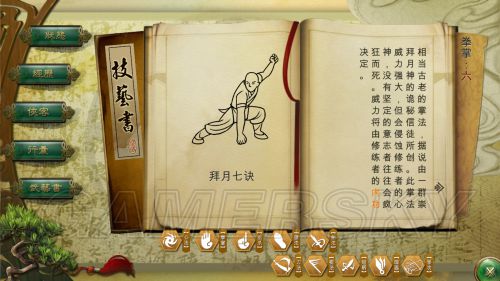 狀態
經歷
俠客
行囊
武藝書
技藝書
拜月七诀
拳掌·六
相当古老的掌法，据说由一群崇
拜月神的诡秘信徒所创。此掌法
威力强大，但会侵蚀修练者的心
神，没有坚定的意志者往往会疯
狂而死。威力将由修练者的内功
决定。
GAMERSKY